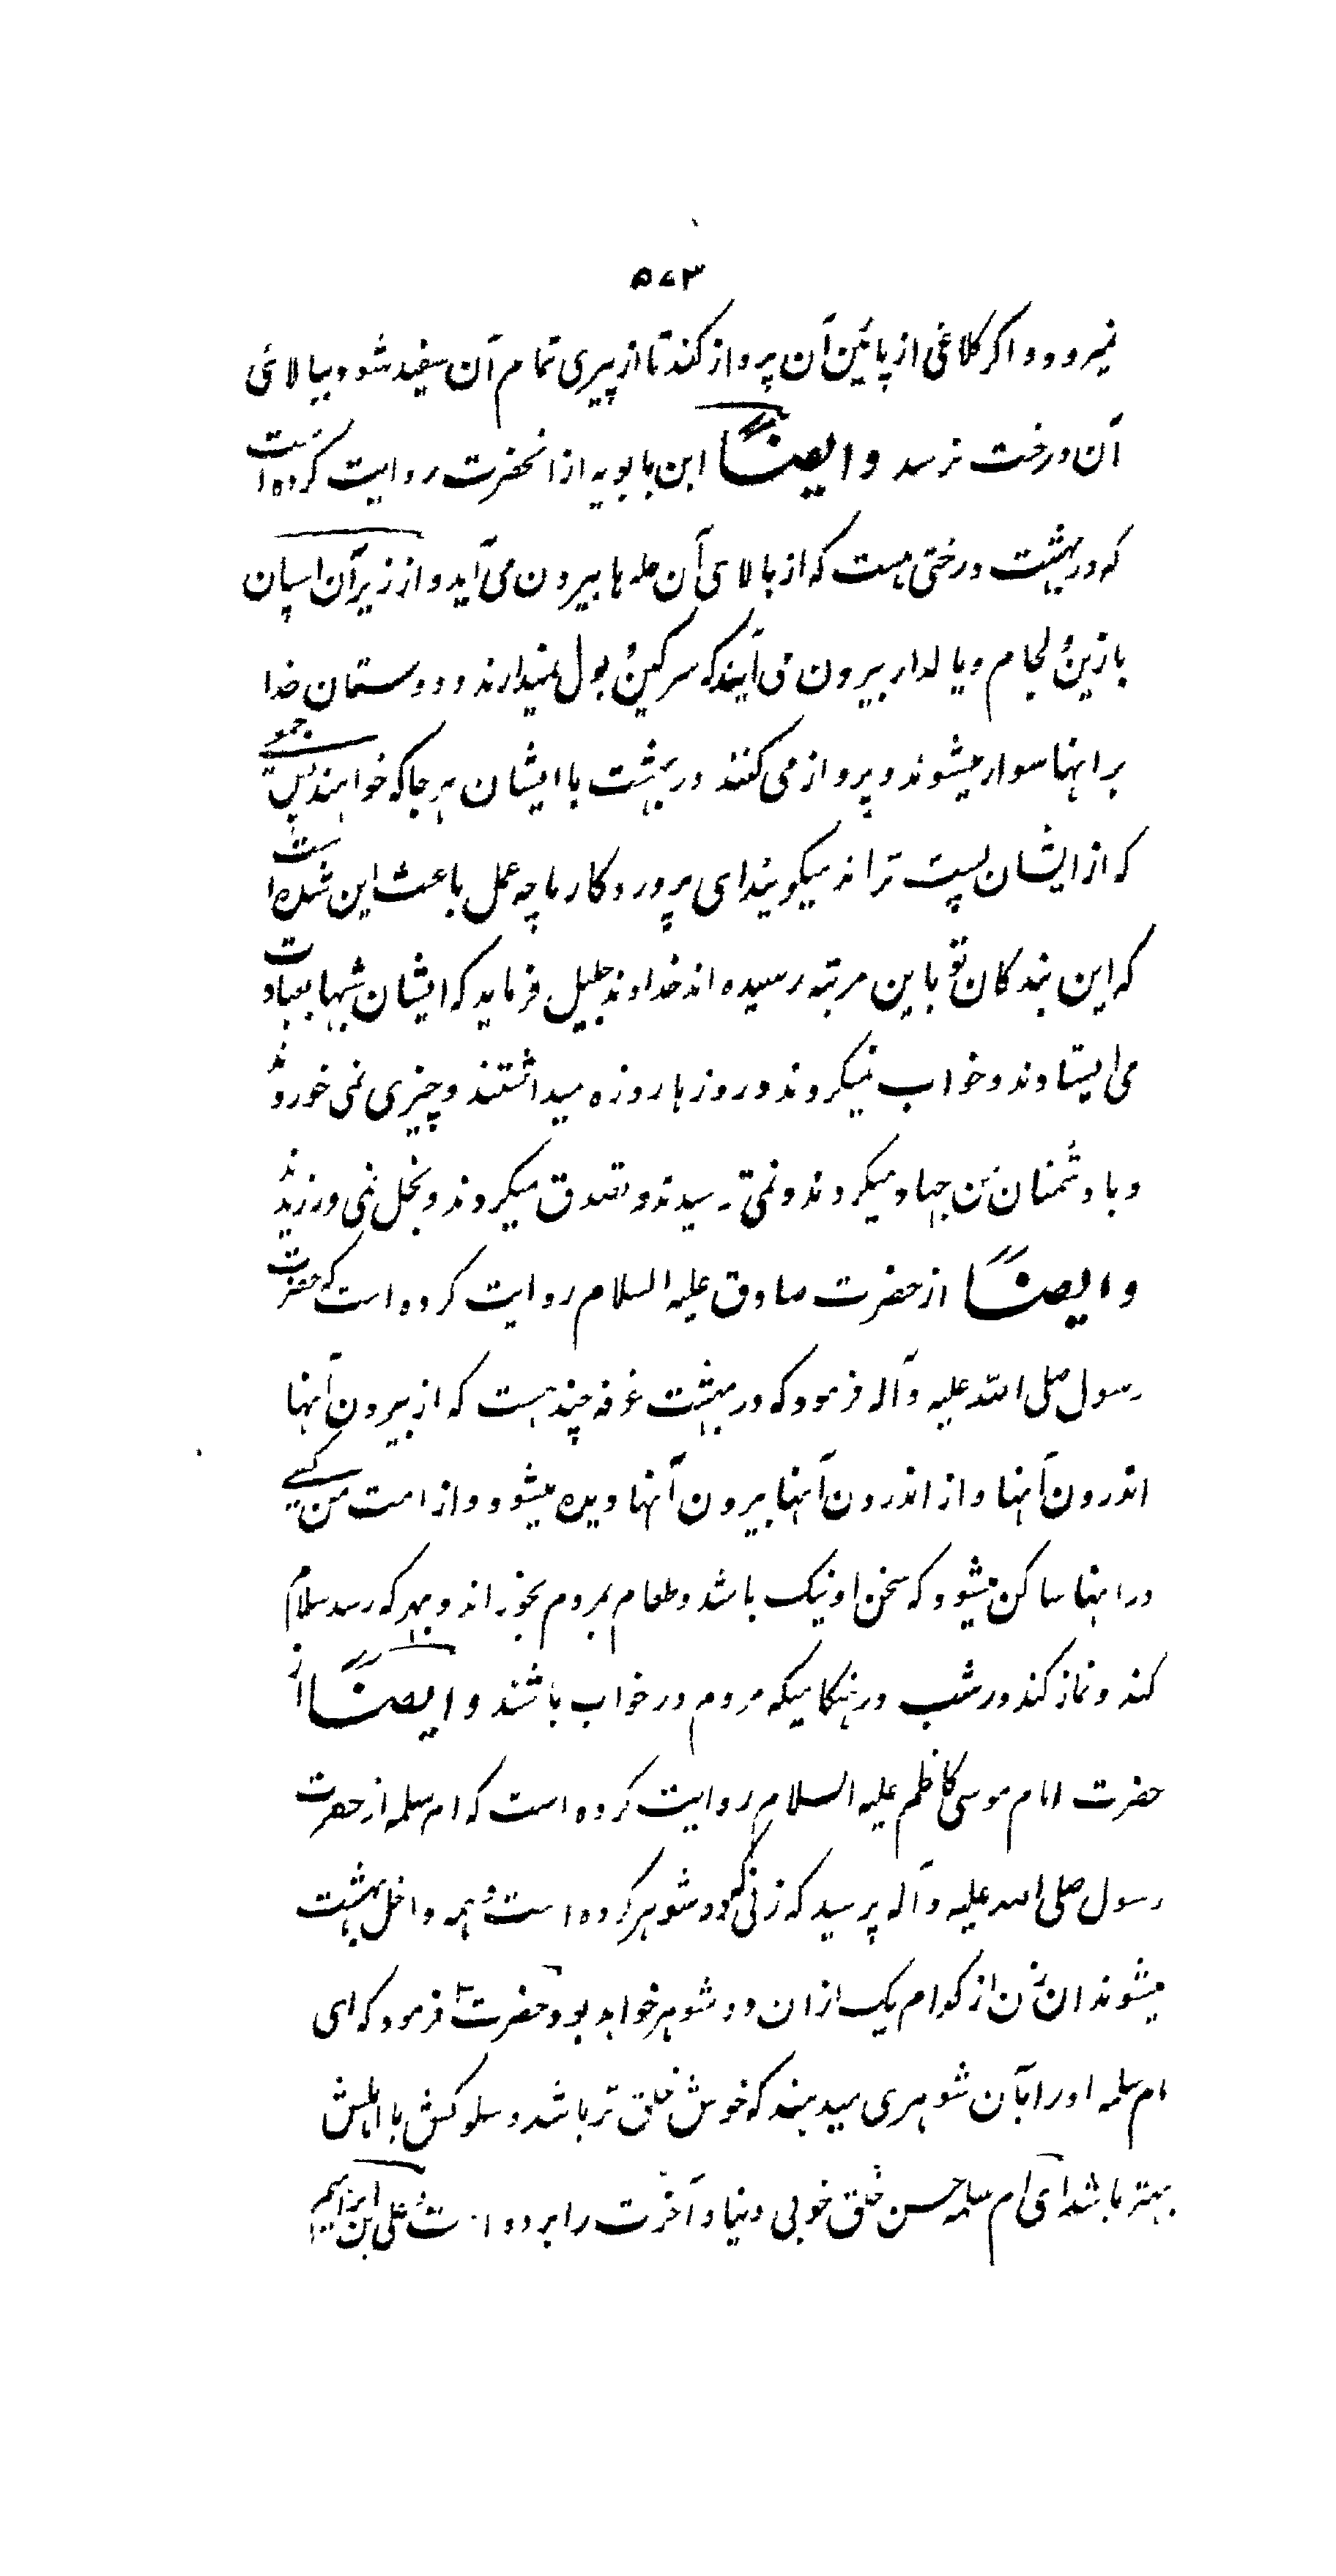 ۵۷۳
نمیرود و اگر کلاغی از پائین آن پرواز کند تا از پیری تمام آن سفید شود ببالائی
آن درخت نرسد وایضاً ابن بابویه از انحضرت روایت کرده است
که در بهشت درختی هست که از بالای آن حله ها بیرون می آید و از زیر آن اسپان
با زین و لجام و بالدار بیرون می آیند که سرکین و بول نمیدارند و دوستان خدا
بر انها سوار میشوند و پرواز می کنند در بهشت با ایشان هر جا که خواهند پس جمعی
که از ایشان پست تر اند میگویند ای پروردگار ما چه عمل باعث این شده است
که این بندگان تو باین مرتبه رسیده اند خداوند جلیل فرماید که ایشان شبها بعبادت
می ایستادند و خواب نمیکردند و روزها روزه میداشتند و چیزی نمی خوردند
و با دشمنان من جهاد میکردند و نمی ترسیدند و تصدق میکردند و بخل نمی ورزیدند
وایضاً از حضرت صادق علیه السلام روایت کرده است که حضرت
رسول صلی الله علیه و آله فرمود که در بهشت غرفه چند هست که از بیرون آنها
اندرون آنها و از اندرون آنها بیرون آنها دیده میشود و از امت من کسی
در انها ساکن میشود که سخن او نیک باشد و طعام بمردم بخوراند و بهر که رسد سلام
کند و نماز کند در شب در هنگامیکه مردم در خواب باشند وایضاً از
حضرت امام موسی کاظم علیه السلام روایت کرده است که ام سلمه از حضرت
رسول صلی الله علیه و آله پرسید که زنی که دو شوهر کرده است و همه داخل بهشت
میشوند ان زن از کدام یک ازان دو شوهر خواهد بود حضرت فرمود که ای
ام سلمه او را بآن شوهری میدهند که خوش خلق تر باشد و سلوکش با اهلش
بهتر باشد ای ام سلمه حسن خلق خوبی دنیا و آخرت را برده است و علی بن ابراهیم